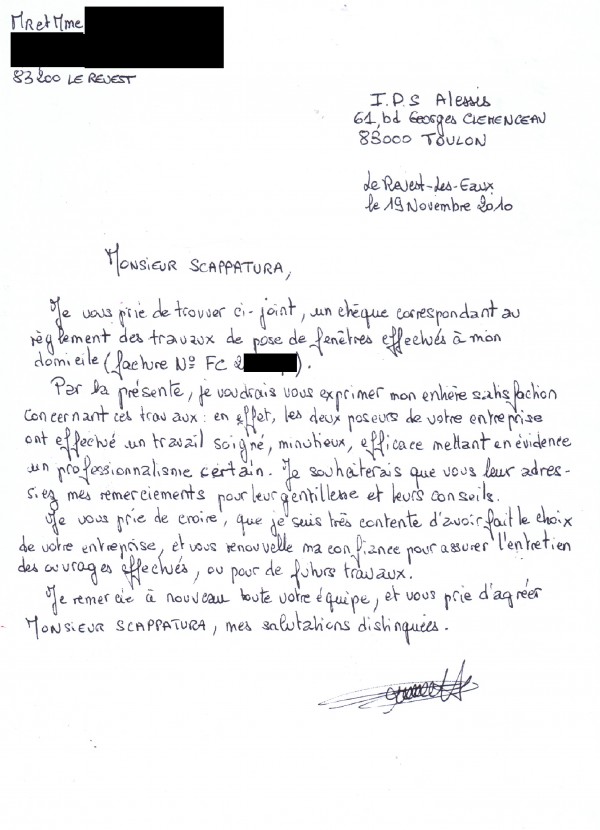 MR et Mme
83200 LE REVEST
I.P.S Alessis
61, bd Georges CLEMENCEAU
83000 TOULON
Le Revest-Les-Eaux
le 19 Novembre 2010
MONSIEUR SCAPPATURA,
Je vous prie de trouver ci-joint, un chèque correspondant au
règlement des travaux de pose de fenêtres effectués à mon
domicile (facture Nº FC 2 ).
Par la présente, je voudrais vous exprimer mon entière satisfaction
concernant ces travaux : en effet, les deux poseurs de votre entreprise
ont effectué un travail soigné, minutieux, efficace mettant en évidence
un professionnalisme certain. Je souhaiterais que vous leur adres-
siez mes remerciements pour leur gentillesse et leurs conseils.
Je vous prie de croire, que je suis très contente d'avoir fait le choix
de votre entreprise, et vous renouvelle ma confiance pour assurer l'entretien
des ouvrages effectués, ou pour de futurs travaux.
Je remercie à nouveau toute votre équipe, et vous prie d'agréer
MONSIEUR SCAPPATURA, mes salutations distinguées.